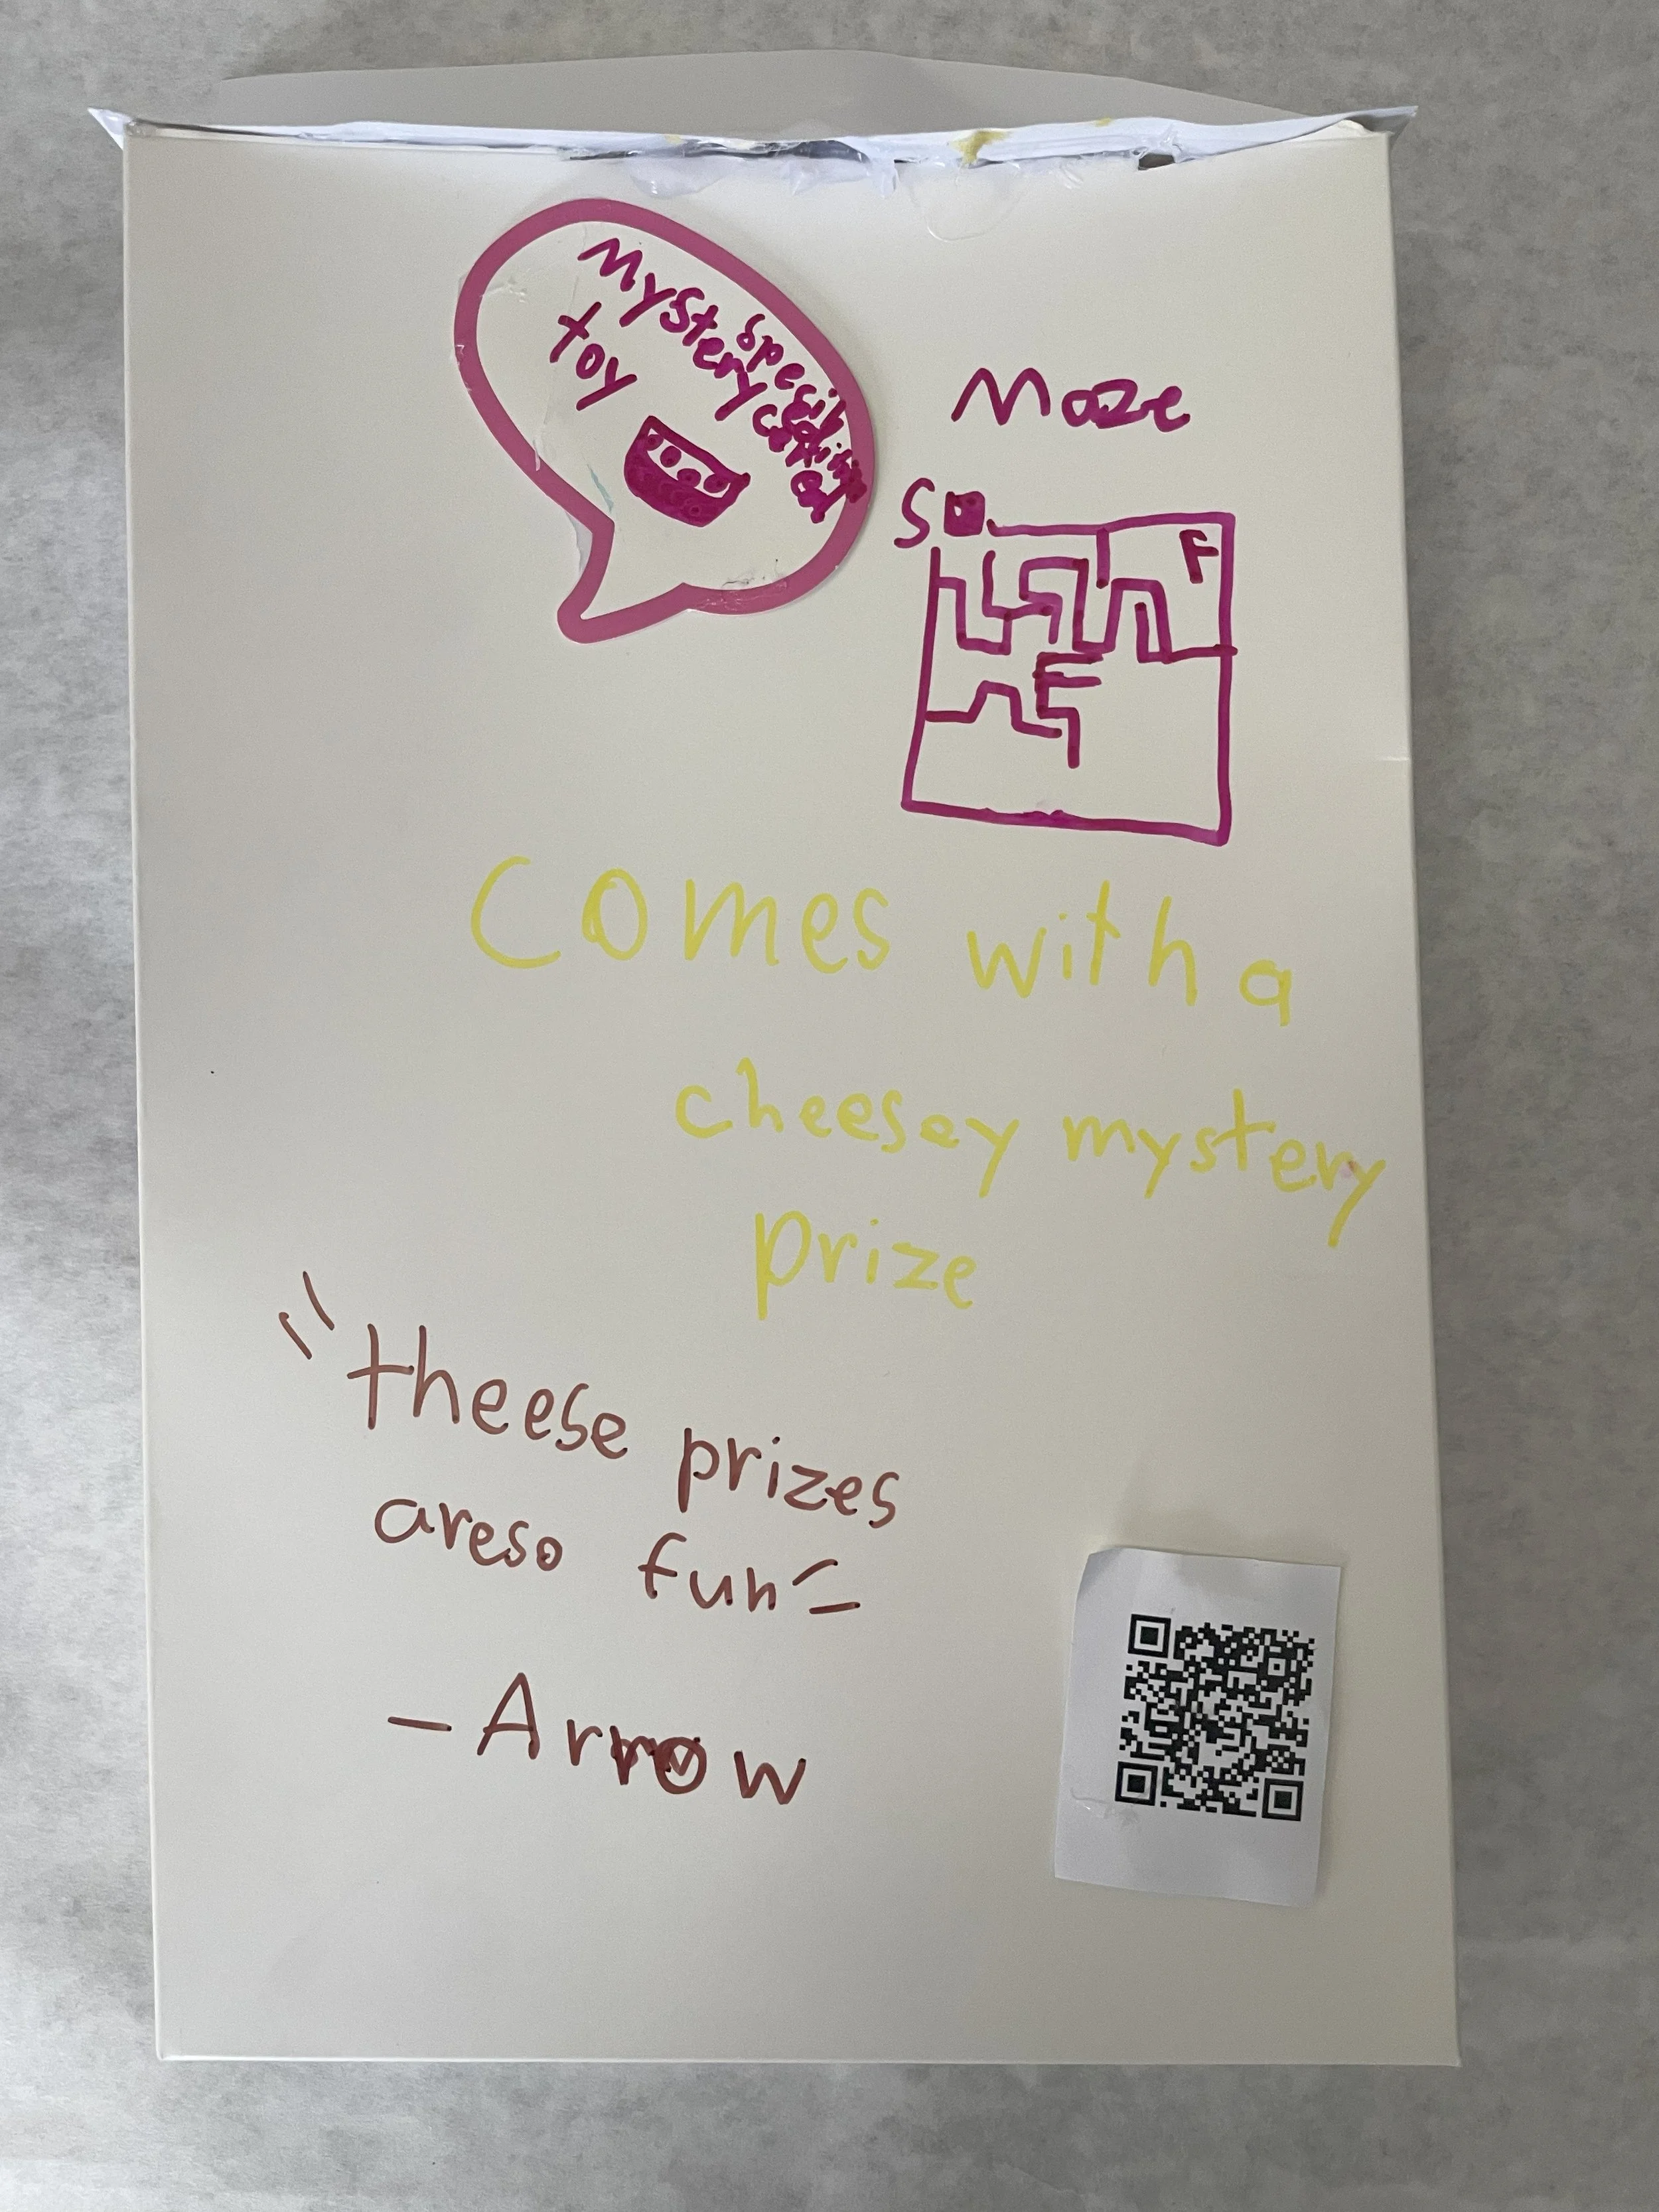 Mystery
toy
Maze
S
F
Comes with a
cheesey mystery
prize
"theese prizes
areso fun"
- Arrow